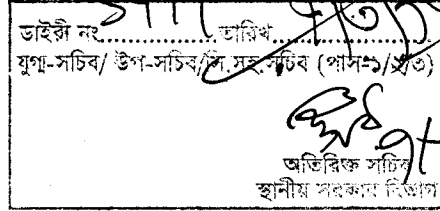 ডাইরী নং..................তারিখ..................
যুগ্ম-সচিব/ উপ-সচিব/সি.সহ.সচিব (পাস-১/২/৩)
অতিরিক্ত সচিব
স্থানীয় সরকার বিভাগ